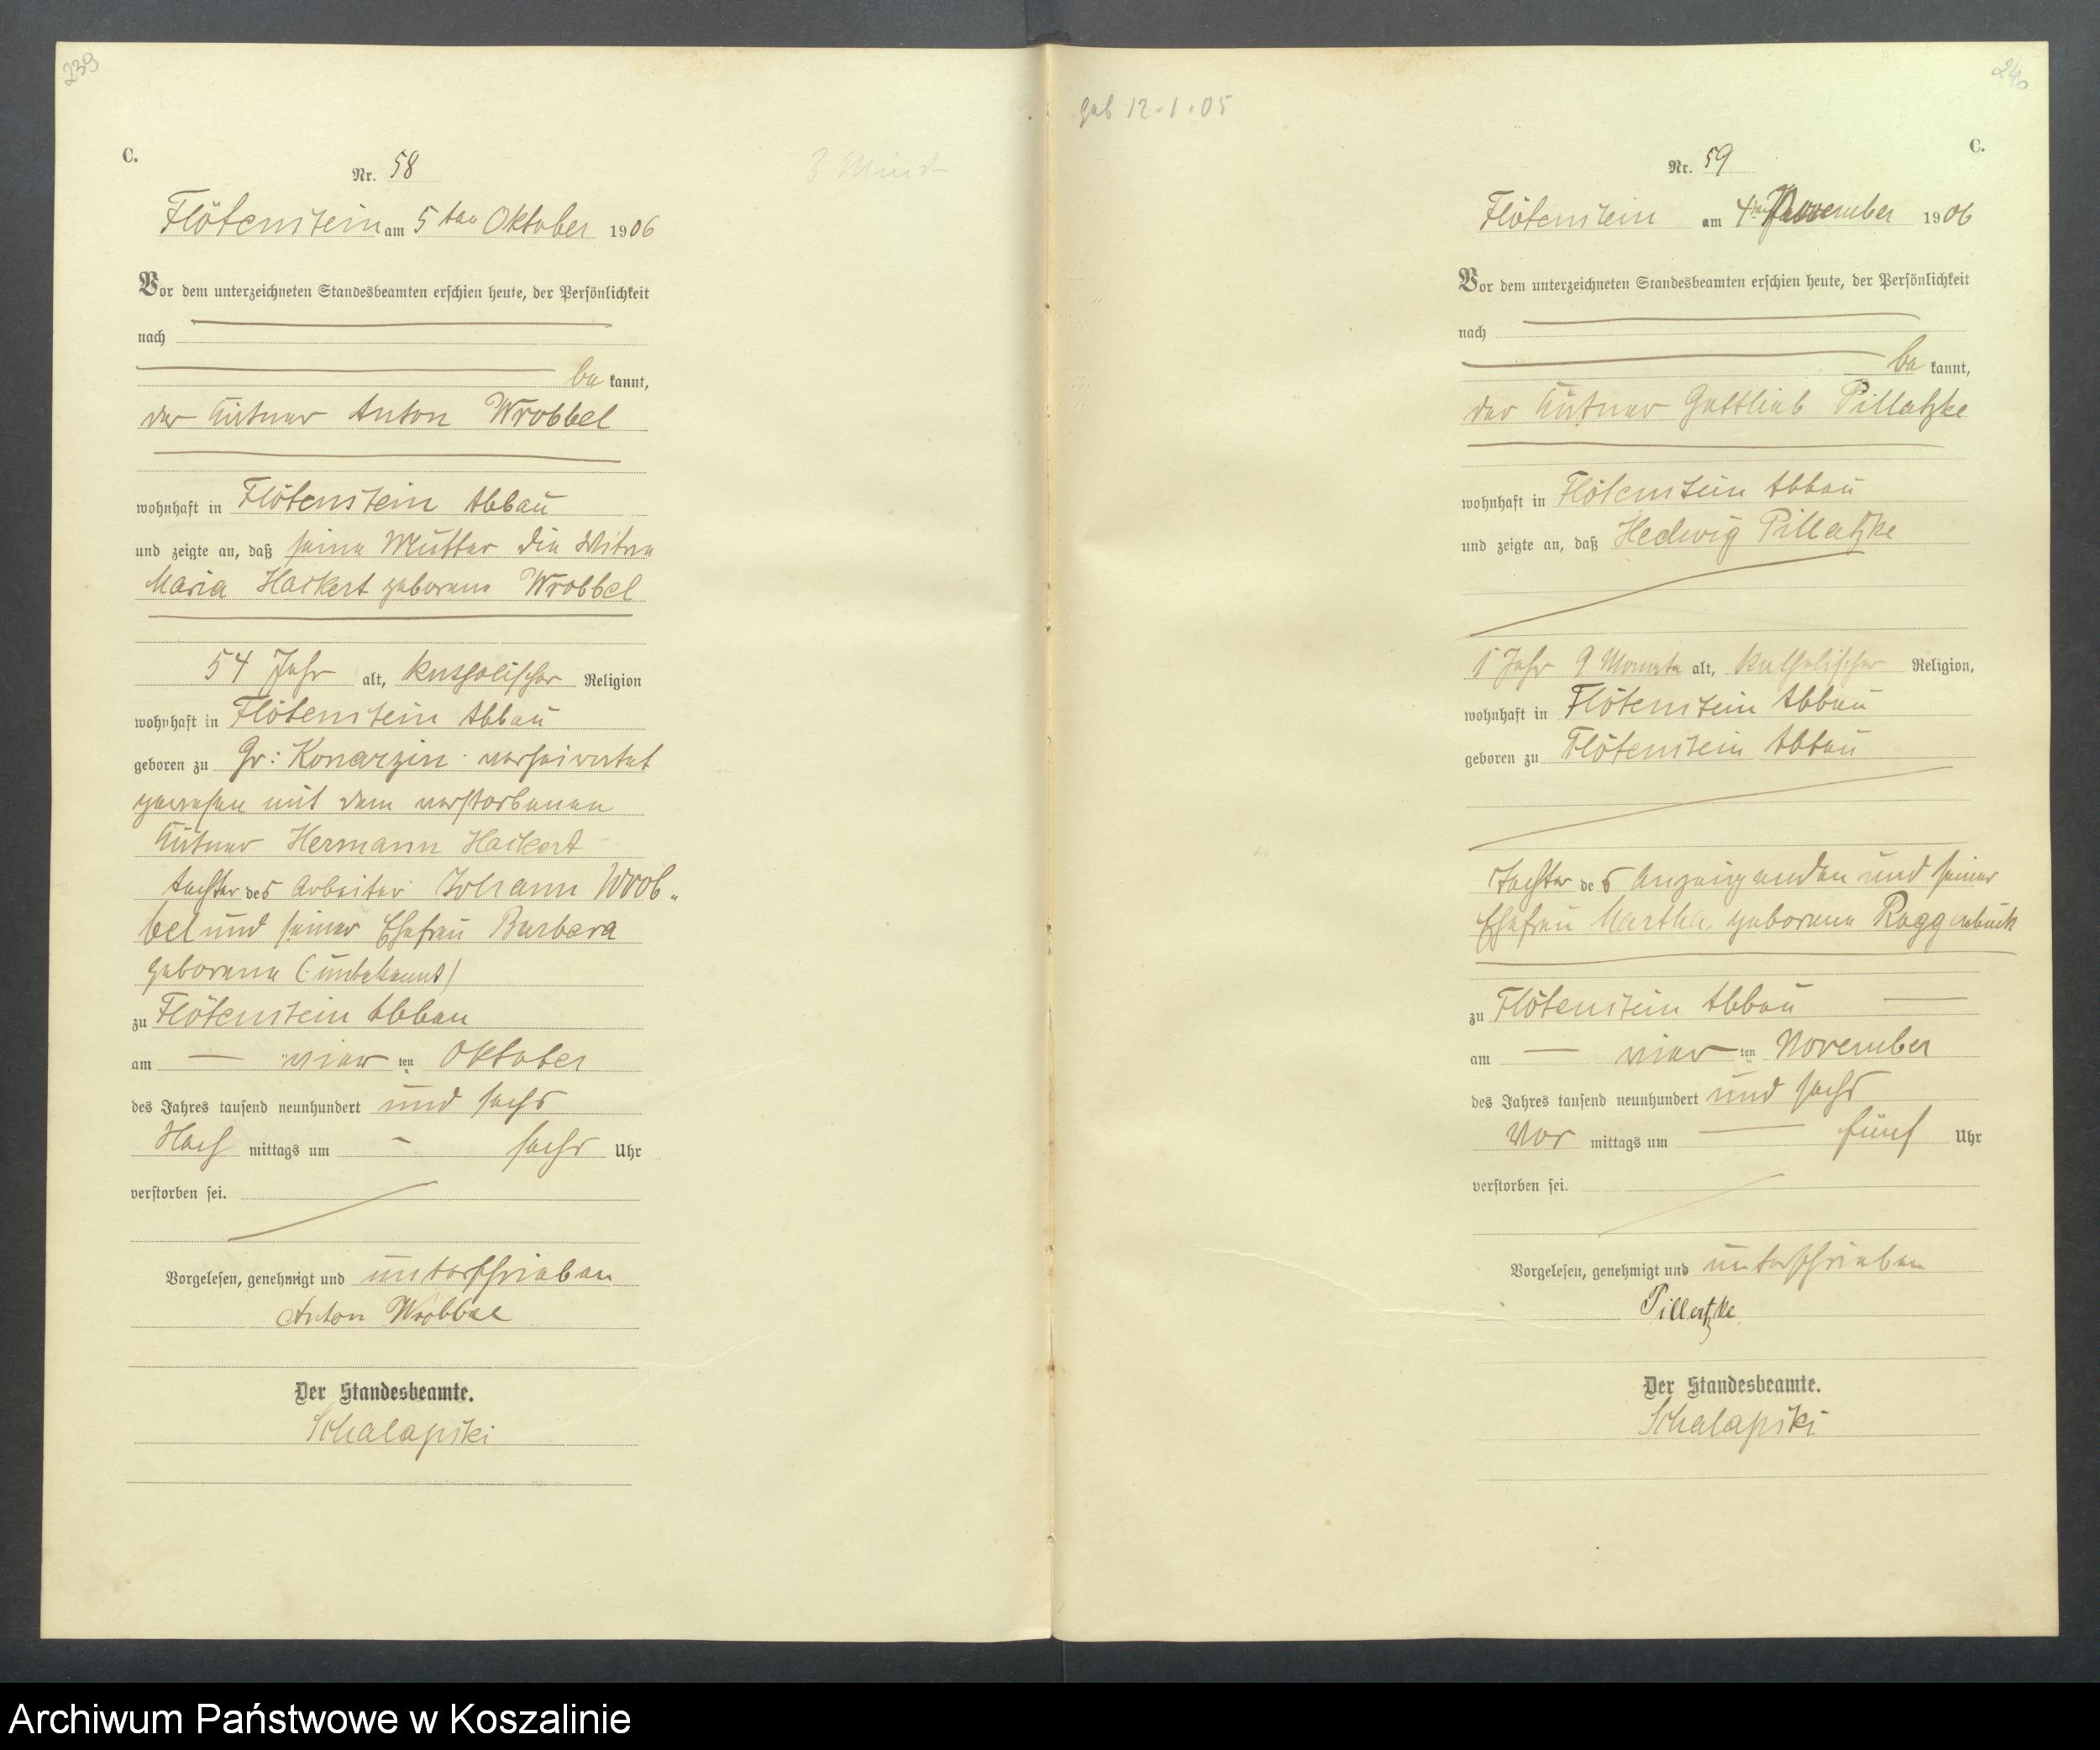 239
C.
Nr. 58
Flötenstein am 5ten Oktober 1906
Vor dem unterzeichneten Standesbeamten erschien heute, der Persönlichkeit
nach
be kannt,
der Kätner Anton Wrobbel
wohnhaft in Flötenstein Abbau
und zeigte an, daß seine Mutter die Witwe
Maria Hackert geborene Wrobbel
54 Jahr alt, katholischer Religion
wohnhaft in Flötenstein Abbau
geboren zu Gr: Konarzin verheiratet
gewesen mit dem verstorbenen
Kätner Hermann Hackert
Tochter des Arbeiter Johann Wrob„
bel und seiner Ehefrau Barbara
geborene (unbekannt)
zu Flötenstein Abbau
am — vier ten Oktober
des Jahres tausend neunhundert und sechs
Nach mittags um – sechs Uhr
verstorben sei.
Vorgelesen, genehmigt und unterschrieben
Anton Wrobbel
Der Standesbeamte.
Schalapski
240
geb 12.1.05
C.
Nr. 59
Flötenstein am 4ten November 1906
Vor dem unterzeichneten Standesbeamten erschien heute, der Persönlichkeit
nach
be kannt,
der Kätner Gottlieb Pillatzke
wohnhaft in Flötenstein Abbau
und zeigte an, daß Hedwig Pillatzke
1 Jahr 9 Monate alt, katholischer Religion,
wohnhaft in Flötenstein Abbau
geboren zu Flötenstein Abbau
Tochter des Anzeigenden und seiner
Ehefrau Martha geborene Roggenbuck
zu Flötenstein Abbau —
am — vier ten November
des Jahres tausend neunhundert und sechs
Vor mittags um — fünf Uhr
verstorben sei.
Vorgelesen, genehmigt und unterschrieben
Pillatzke
Der Standesbeamte.
Schalapski
Archiwum Państwowe w Koszalinie